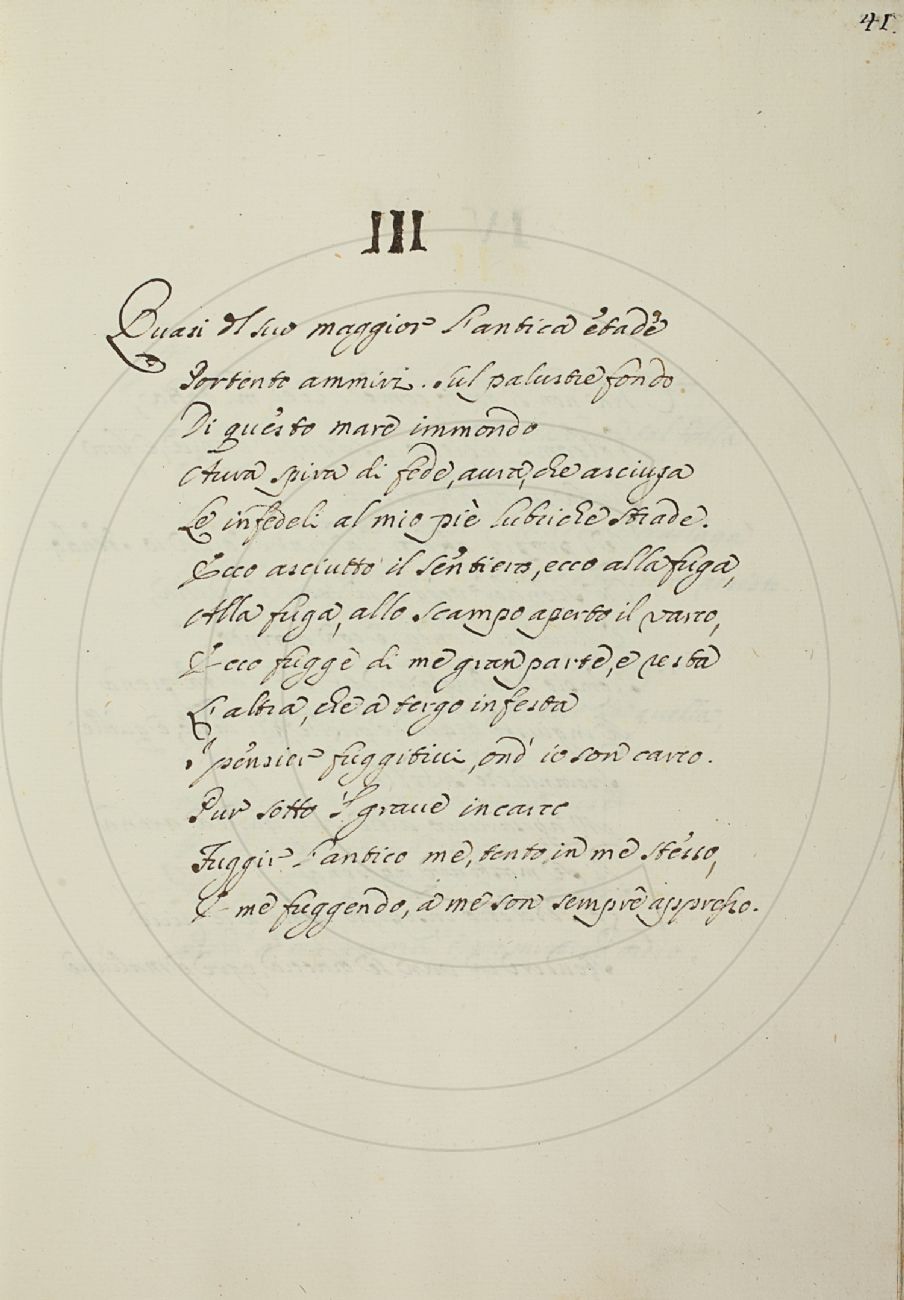 41.
III
Quasi del suo maggior l'antica etade
Portento ammiri. Sul palustre fondo
Di questo mare immondo
Aura spira di fede, aura, che asciuga
Le infedeli al mio piè lubriche strade.
Ecco asciutto il sentiero, ecco alla fuga,
Alla fuga, allo scampo aperto il varco,
Ecco fugge di me gran parte, e resta
L'altra, che a tergo infesta
I pensier fuggitivi, ond' io son carco.
Pur sotto 'l grave incarco
Fuggir l'antico me, tento, in me stesso,
E me fuggendo, a me son sempre appresso.